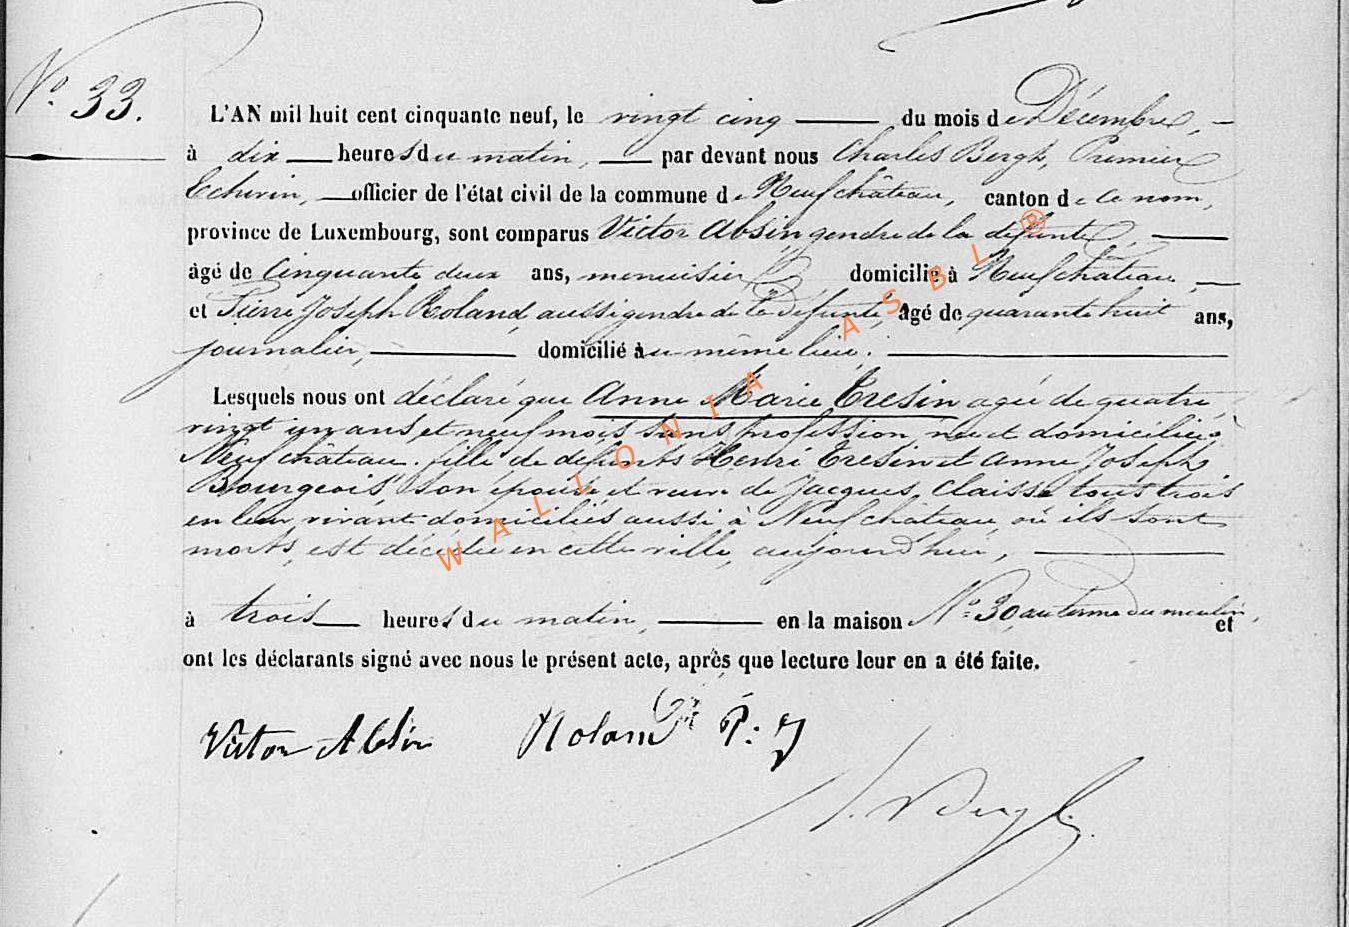 N° 33.
L'AN mil huit cent cinquante neuf, le vingt cinq du mois de Décembre,
à dix heures du matin, par devant nous Charles Bergh, Premier
Echevin, officier de l'état civil de la commune de Neufchâteau, canton de ce nom,
province de Luxembourg, sont comparus Victor Absin, gendre de la défunte,
âgé de cinquante deux ans, menuisier, domicilié à Neufchâteau,
et Pierre Joseph Roland, aussi gendre de la défunte, âgé de quarante huit ans,
journalier, domicilié au même lieu.
Lesquels nous ont déclaré que Anne Marie Eresin agée de quatre
vingt un ans et neuf mois, sans profession, née et domiciliée à
Neufchâteau, fille de defunts Henri Eresin et Anne Joseph
Bourgeois, son épouse et veuve de Jacques Claisse tous trois
en leur vivant domiciliés aussi à Neufchâteau, où ils sont
morts, est décédée en cette ville, aujourd'hui,
à trois heures du matin, en la maison N° 30 au terme du moulin, et
ont les déclarants signé avec nous le présent acte, après que lecture leur en a été faite.
Victor Absin Roland P: J
Bergh
WALLONIA ASBL ®